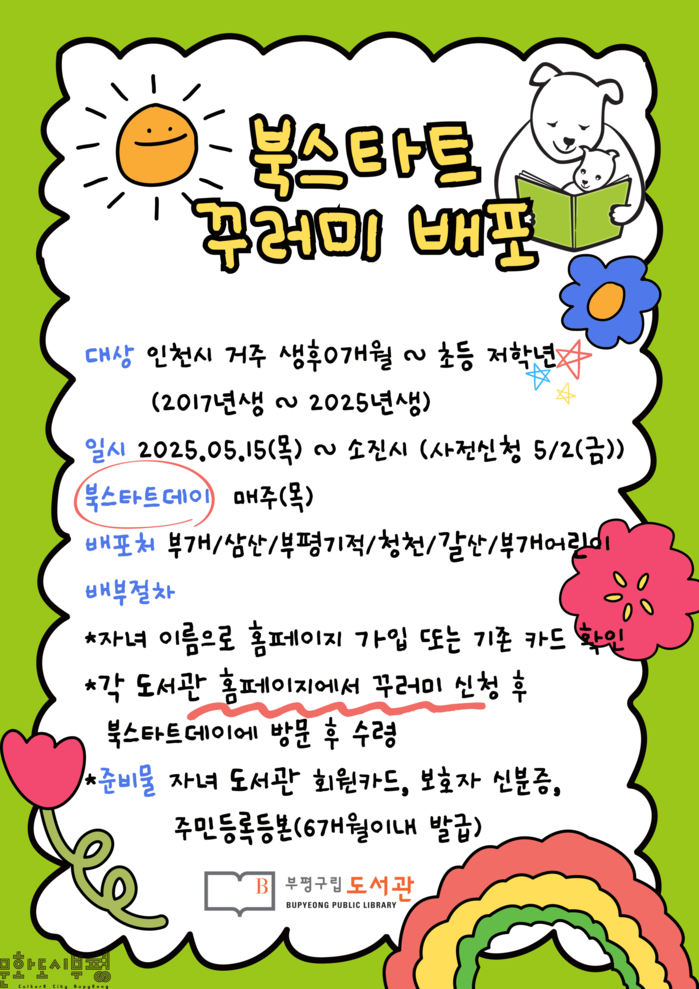 북스타트
꾸러미 배포
대상 인천시 거주 생후0개월 ~ 초등 저학년
(2017년생 ~ 2025년생)
일시 2025.05.15(목) ~ 소진시 (사전신청 5/2(금))
북스타트데이 매주(목)
배포처 부개/삼산/부평기적/청천/갈산/부개어린이
배부절차
*자녀 이름으로 홈페이지 가입 또는 기존 카드 확인
*각 도서관 홈페이지에서 꾸러미 신청 후
북스타트데이에 방문 후 수령
*준비물 자녀 도서관 회원카드, 보호자 신분증,
주민등록등본(6개월이내 발급)
B 부평구립 도서관
BUPYEONG PUBLIC LIBRARY
문화도시부평
Culture City Bupyeong